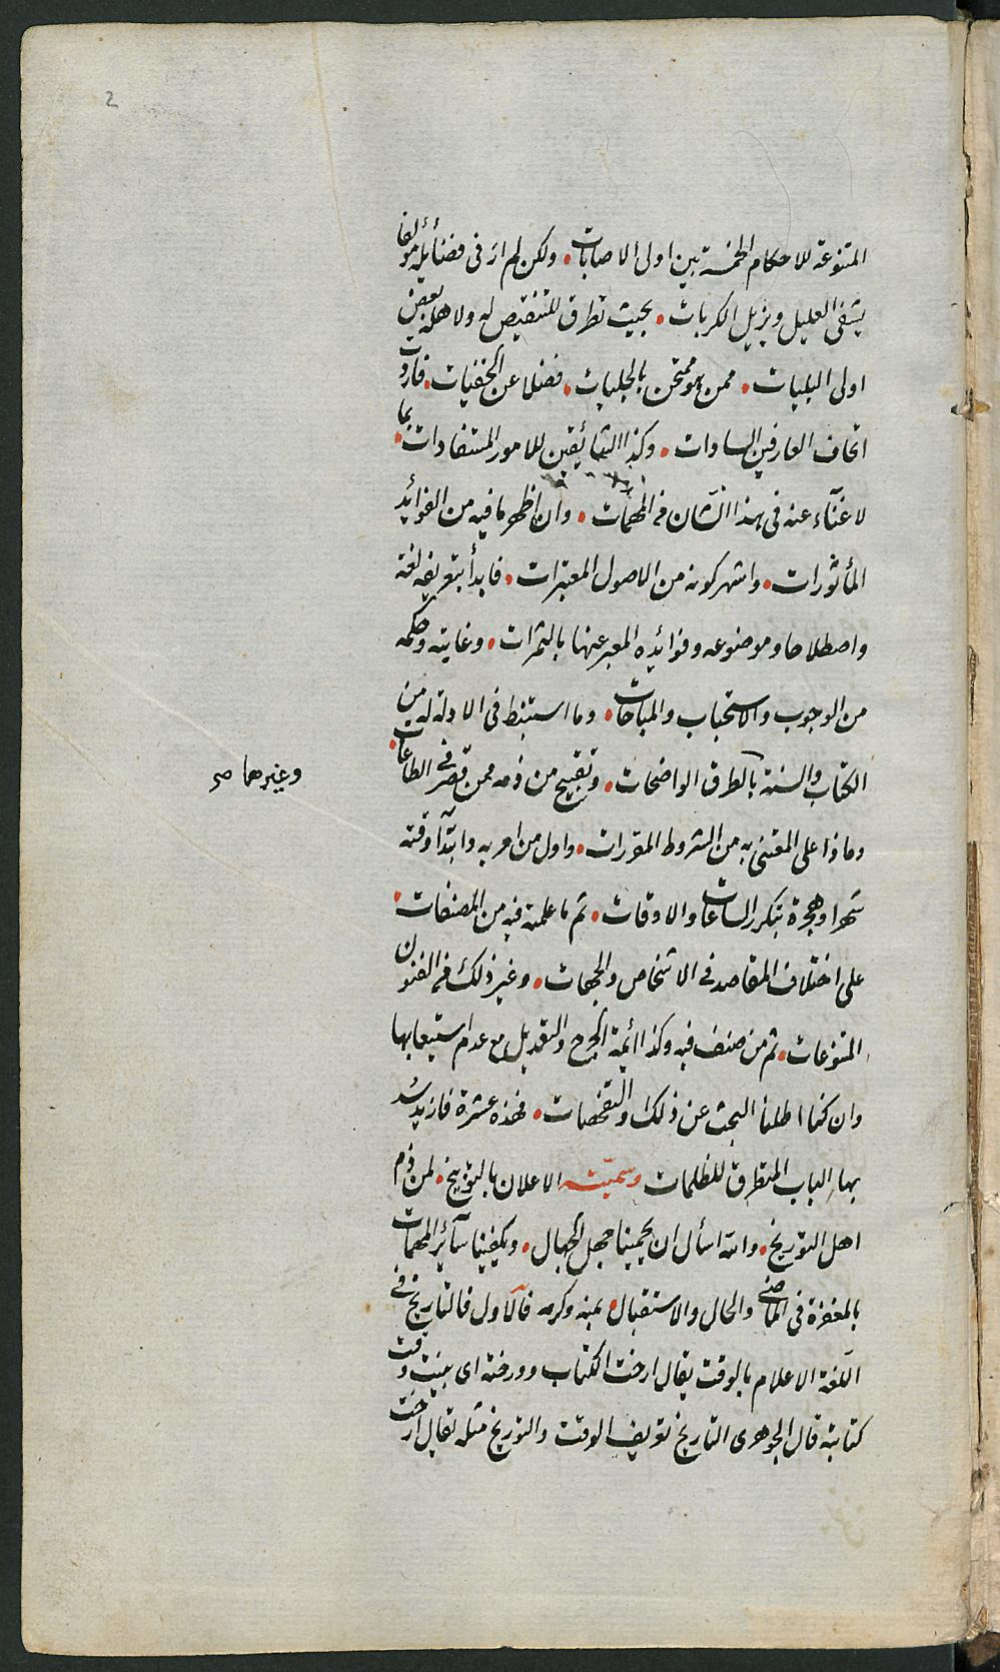 المتنوعة للاحكام الخمسة بين اولى الاصابات • ولكن لم ار فى فضائله مؤلفا
يشفى العليل ويزيل الكربات • بحيث تطرق للتنقيص له ولاهله بعض
اولى البليات • ممن هو ممتحن بالجليات • فضلا عن الخفيات • فاردت
اتحاف العارفين السادات • وكذا الشائقين للامور المستفادات • بما
لا غناء عنه فى هذا الشان من المهمات • وان اظهر ما فيه من الفوائد
المأثورات • واشهر كونه من الاصول المعتبرات • فابدأ بتعريفه لغة
واصطلاحا وموضوعه وفوائده المعبر عنها بالثمرات • وغايته وحكمه
من الوجوب والاستحباب والمباحات • وما استنبط فى الادلة له من
الكتاب والسنة بالطرق الواضحات • وتقبيح من ذمه ممن قصر فى الطاعات •
وغيرهما صح
وماذا على المعتنى به من الشروط المقررات • واول من امر به وابتدا وقته
شهرا وهجرة بتكرر الساعات والاوقات • ثم ما علمته فيه من المصنفات •
على اختلاف المقاصد فى الاشخاص والجهات • وغير ذلك من الفنون
المتنوعات • ثم من صنف فيه وكذا ائمة الجرح والتعديل مع عدم استيعابها
وان كنا اطلنا البحث عن ذلك والتفحصات • فهذه عشرة فازيد سُد
بها الباب المتطرق للظلمات وسميته الاعلان بالتوبيخ • لمن ذم
اهل التوريخ • والله اسأل ان يحمينا جهل الجهال • ويكفينا سائر المهمات
بالمغفرة فى الماضى والحال والاستقبال • بمنه وكرمه فالاول فالتاريخ فى
اللغة الاعلام بالوقت يقال ارخت الكتاب وورخته اى بينت وقت
كتابته قال الجوهرى التاريخ تعريف الوقت والتوريخ مثله تقال ارخت